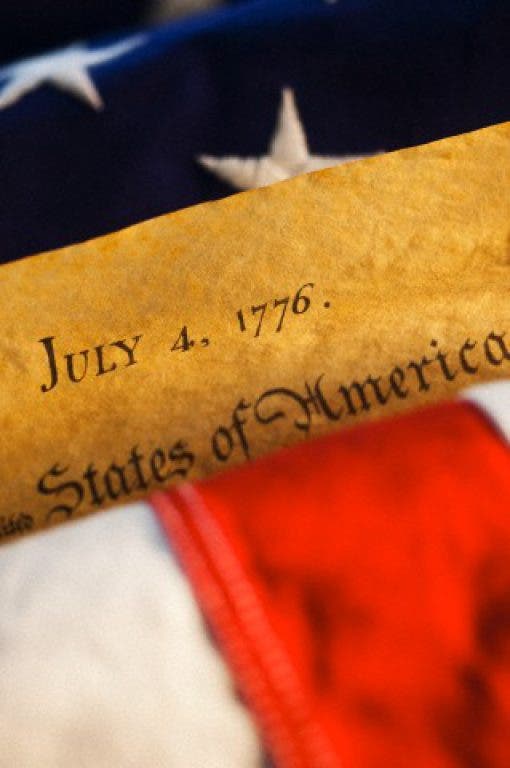 JULY 4, 1776.
ited States of America